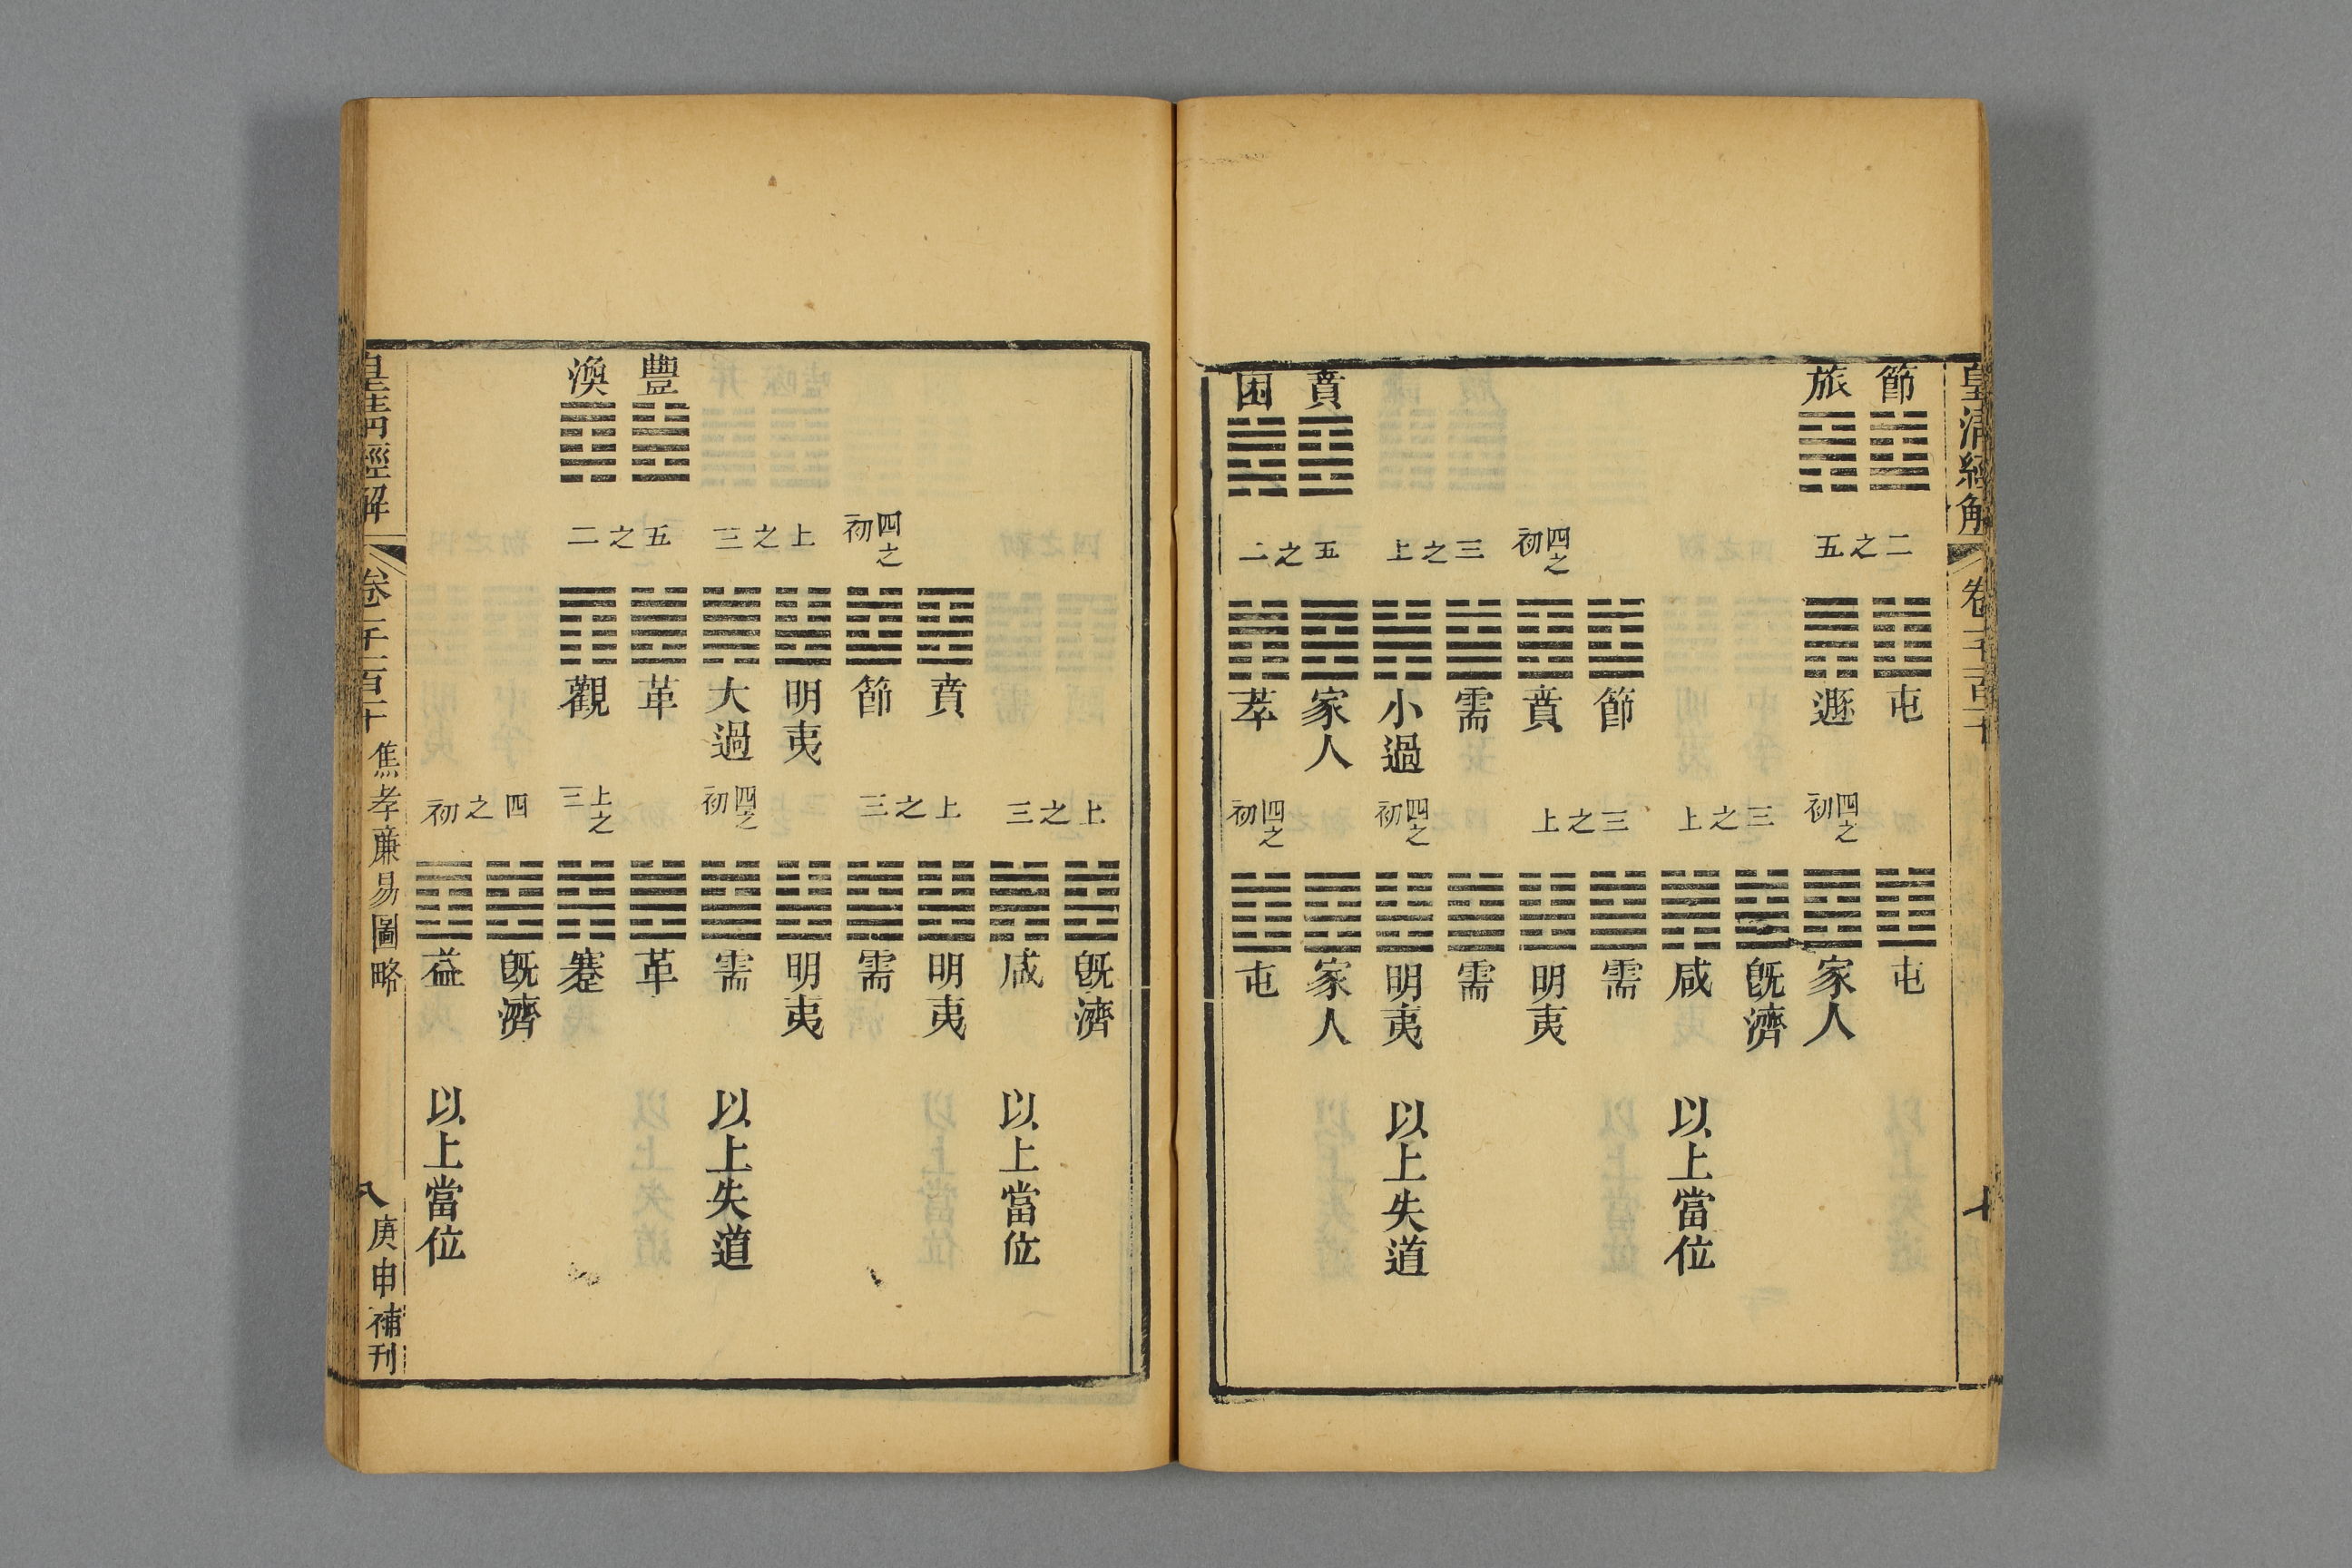 皇清經解 卷一千一百十 七
節 屯 屯
二之五 四之初
旅 遯 家人
既濟
三之上
咸 以上當位
節 需
四之初 三之上
賁 明夷
需 需
三之上 四之初
小過 明夷 以上失道
賁 家人 家人
五之二 四之初
困 萃 屯
既濟
上之三
咸 以上當位
賁 明夷
四之初 上之三
節 需
明夷 明夷
上之三 四之初
大過 需 以上失道
豐 革 革
五之二 上之三
渙 觀 蹇
既濟
四之初
益 以上當位
皇清經解 卷一千一百十 焦孝廉易圖略 八 庚申補刊